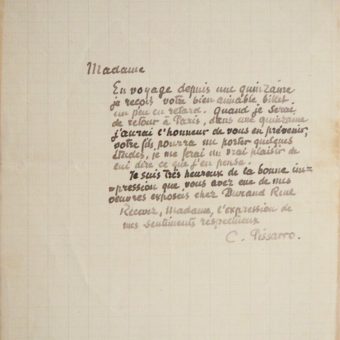 Madame
En voyage depuis une quinzaine
je reçois votre bien aimable billet
un peu en retard. Quand je serai
de retour à Paris, dans une quinzaine
j'aurai l'honneur de vous en prévenir,
votre fils pourra me porter quelques
études, je me ferai un vrai plaisir de
lui dire ce que j'en pense.
Je suis très heureux de la bonne im-
pression que vous avez eue de mes
oeuvres exposées chez Durand Ruel
Recevez, Madame, l'expression de
mes sentiments respectueux
C. Pissarro